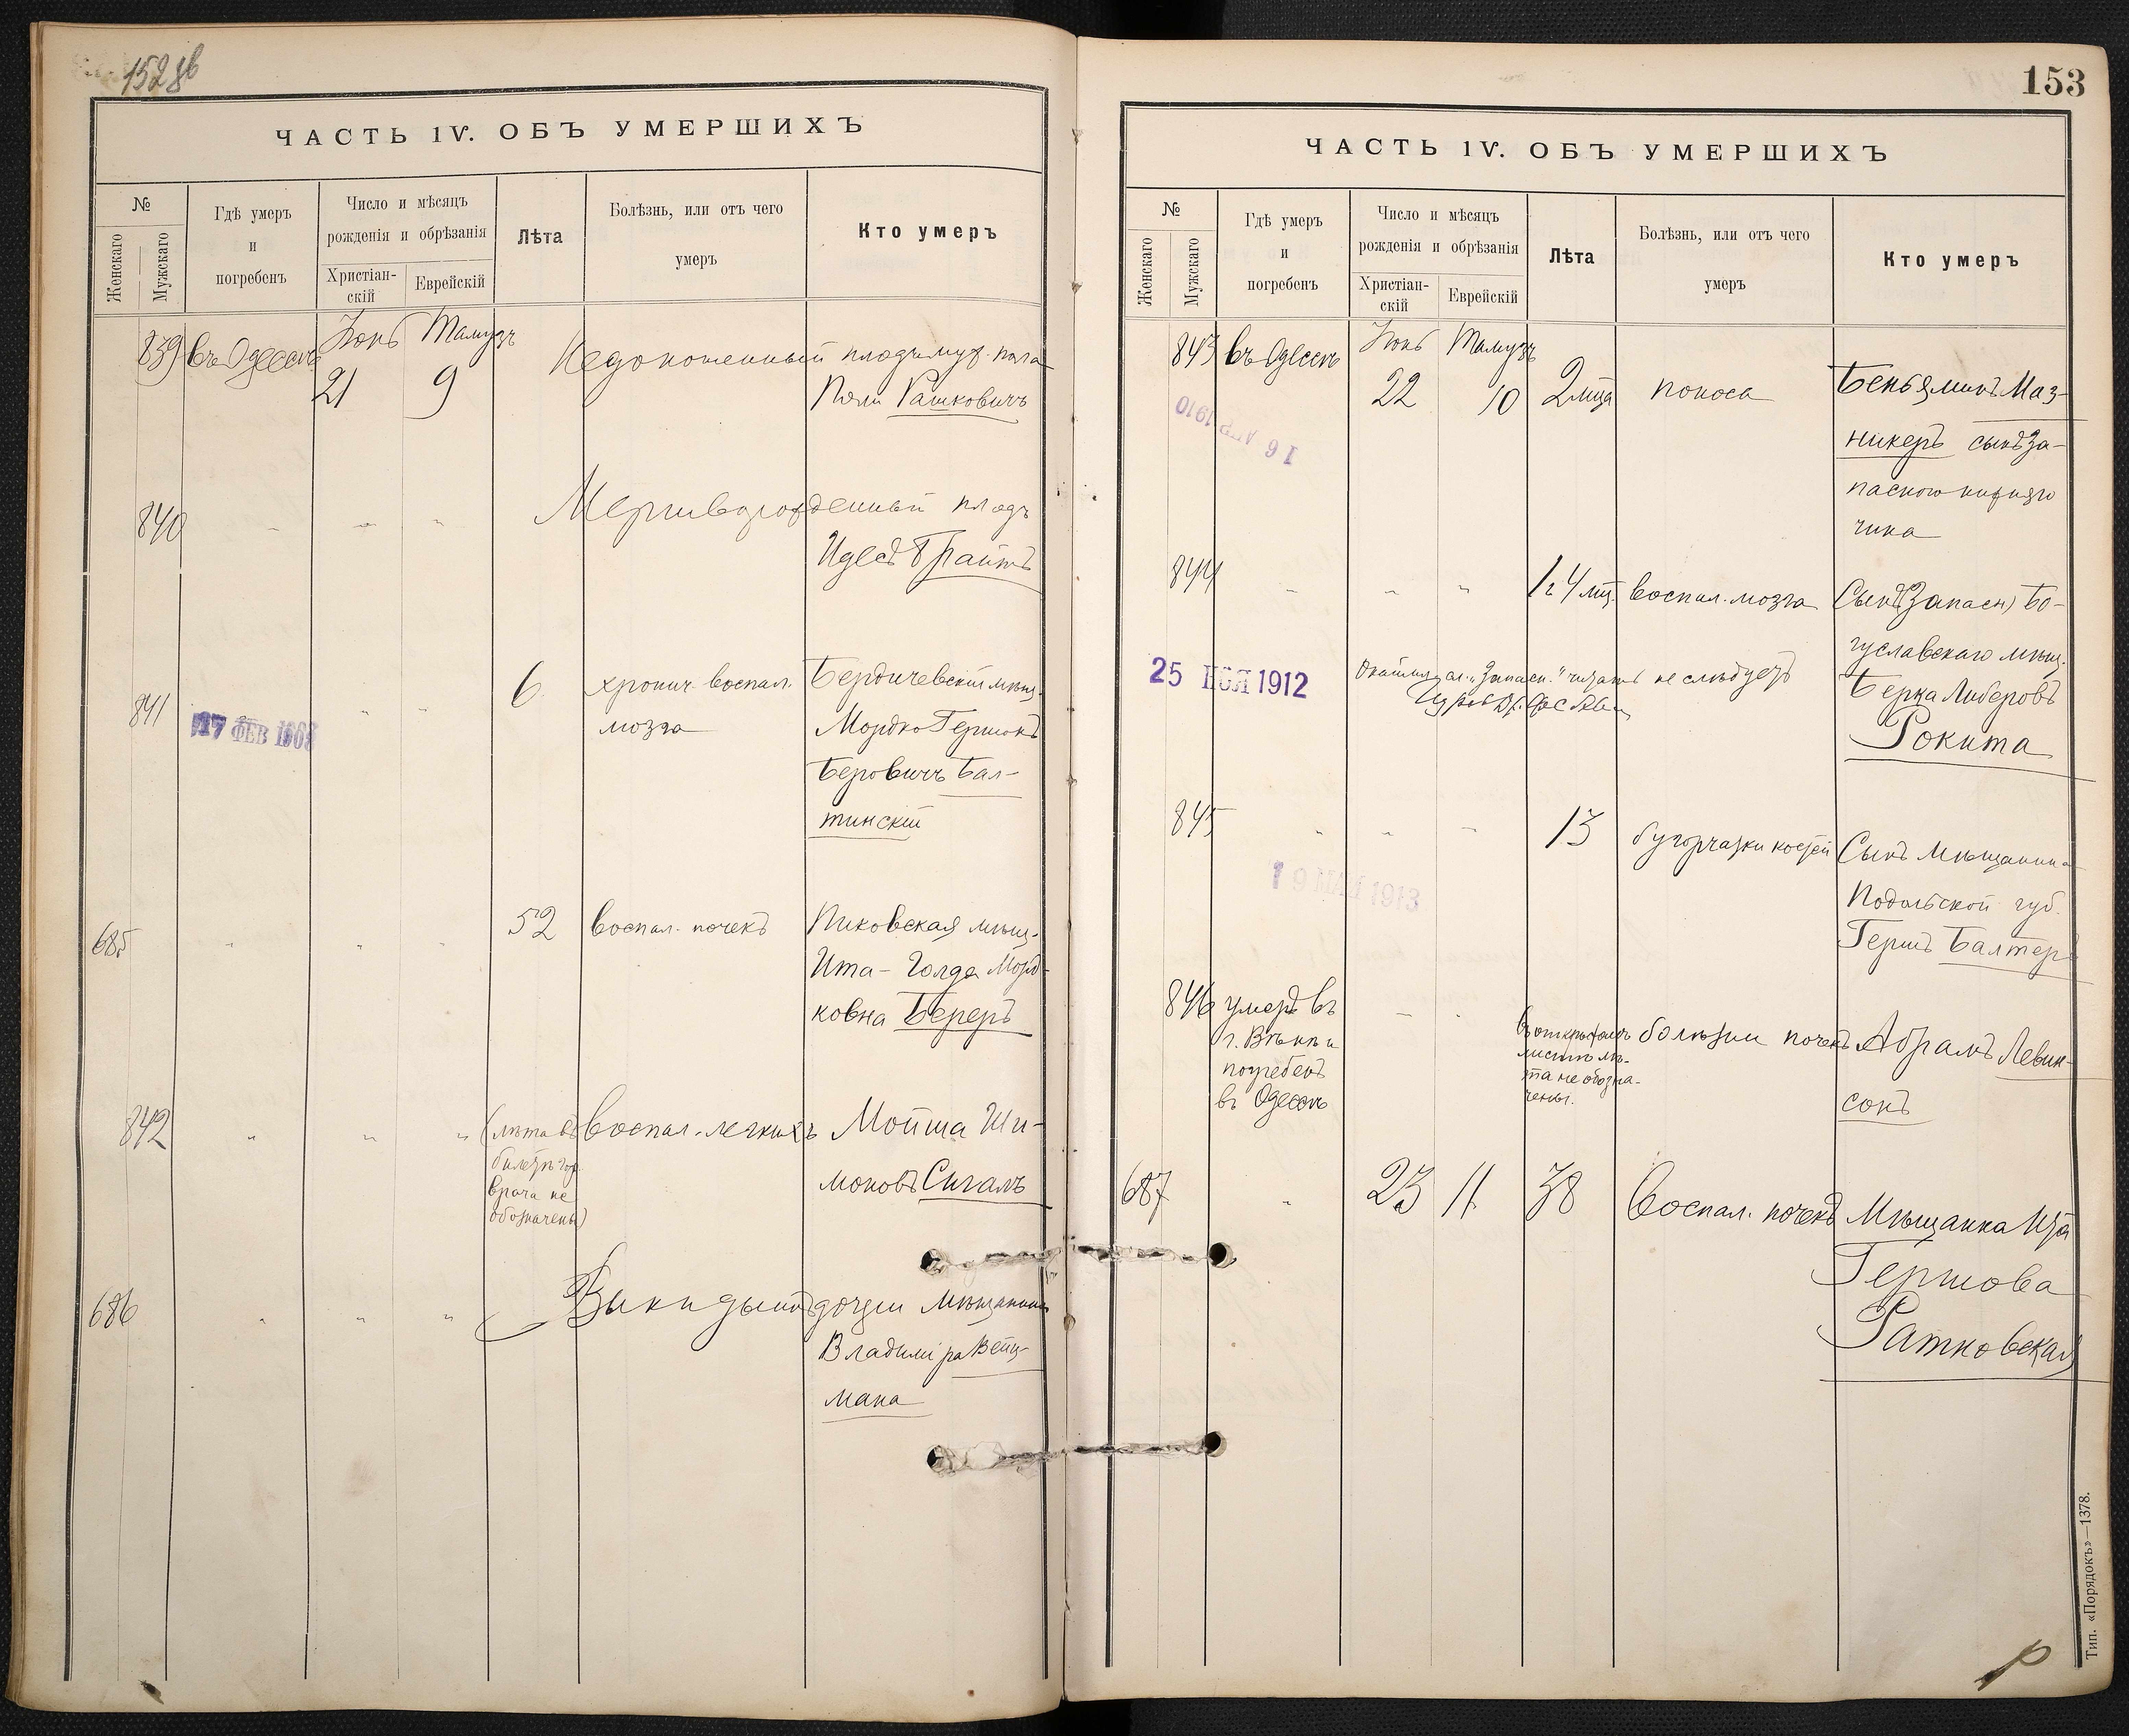 152 об
ЧАСТЬ 1V. ОБЪ УМЕРШИХЪ
№
Женскаго
Мужскаго
Гдѣ умеръ
и
погребенъ
Число и мѣсяцъ
рожденія и обрѣзанія
Христіан-
скій
Еврейскій
Лѣта
Болѣзнь, или отъ чего
умеръ
Кто умеръ
839 въ Одессѣ Іюнь Тамузъ Недоношенный плодъ муж. пола
21 9 Рашковичъ
840 - - " Мертворожденный плодъ
Идесъ Трайтъ
841 " " 6 хронич. воспал. Бердичевскій мѣщ.
мозга Мордко Гершонъ
Беровичъ Бал-
тинскій
17 ФЕВ 1908
685 " " " 52 воспал. почекъ Пиковская мѣщ.
Ита-Голда Морд-
ковна Береръ
842 " " " (лѣта въ воспал. легкихъ Мойша Ши-
билетѣ гор. моновъ Сигалъ
врача не
обозначены)
686 " " " Выкидышъ дочери мѣщанина
Владиміра Вейц-
мана
153
ЧАСТЬ 1V. ОБЪ УМЕРШИХЪ
№
Женскаго
Мужскаго
Гдѣ умеръ
и
погребенъ
Число и мѣсяцъ
рожденія и обрѣзанія
Христіан-
скій
Еврейскій
Лѣта
Болѣзнь, или отъ чего
умеръ
Кто умеръ
843 въ Одессѣ Іюнь Тамузъ
22 10 2 м-ца поноса Беньяминъ Маз-
никеръ сынъ За-
паснаго нижняго
чина
16 АПР 1910
844 - - " 1 г 4 мц. воспал. мозга Сынъ (Запасн) Бо-
гуславскаго мѣщ.
Берка Либеровъ
Рокита
25 НОЯ 1912
"Запасн." читать не слѣдуетъ
845 " - - 13 бугорчатки костей Сынъ мѣщанина
Подольской губ.
Гершъ Балтеръ
19 МАЙ 1913
846 умеръ въ - - въ открытомъ болѣзни почекъ Абрамъ Левин-
г. Вѣнѣ и листѣ лѣ- сонъ
погребенъ та не обозна-
въ Одессѣ чены.
687 " 23 11 38 воспал. почекъ Мѣщанка Ита
Гершова
Ратновская
Тип. «Порядокъ»—1378.